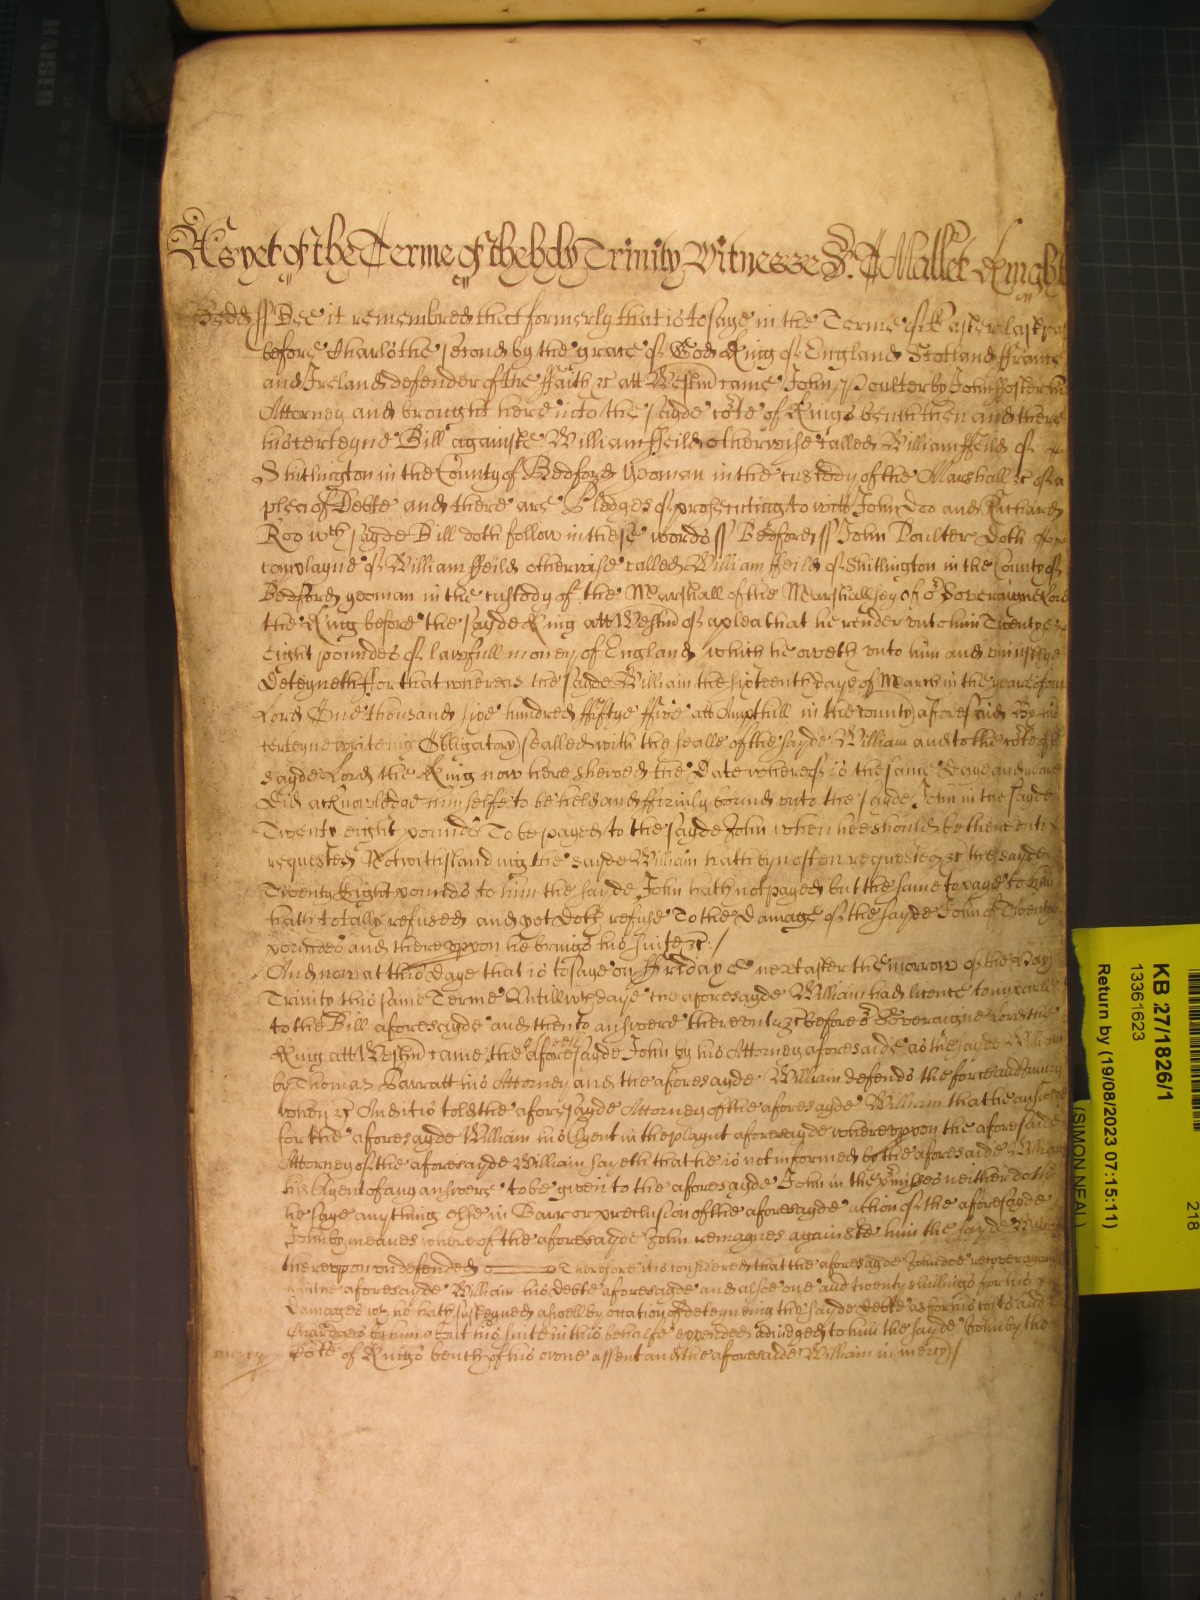 As yet of the Terme of the holy Trinity Witnesse Sr. T Mallet Knight
Bedd ss Bee it remembred that formerly that is to saye in the Terme of Easter last past
before Charls the second by the grace of God King of England Scotland ffrance
and Ireland defender of the ffaith &c att Westm came John Poulter by John ffoster his
Attorney and brought here into the sayde Cote of Kings bench then and there
his certeyne Bill againste William ffeild otherwise called William ffeild of
Shitlington in the County of Bedford yeoman in the custody of the Marshall &c of a
plea of Debte and there are Pledges of prosecuting to witt John Doo and Richard
Roo wch sayde Bill doth follow in these words ss Bedford ss John Poulter doth
complayne of William ffeild otherwise called William ffeild of Shitlington in the County of
Bedford yeoman in the custody of the Marshall of the Marshallsey of or Soveraigne Lord
the King before the sayde King att Westm of a plea that he render unto him Twenty &
Eight poundes of lawfull money of England which he oweth unto him and uniustlye
Deteyneth ffor that whereas the sayde William the sixteenth daye of March in the yeare of our
Lord One thousand sixe hundred ffiftye ffive att Ampthill in the county aforesaid By his
certeyne writeing Obligatory sealled with the sealle of the sayde William and to the cote of the
sayde Lord the King now here shewed the Date whereof is the same Daye and yeare
Did acknowledge himselfe to be held and ffirmly bound unto the sayde John in the sayde
Twenty eight pounds To be payed to the sayde John when hee should be thereunto
requested Notwithstanding the sayde William hath byn often requested &c the sayde
Twenty Eight pounds to him the sayde John hath not payed but the same to paye to him
hath totally refused and yet doth refuse To the Damage of the sayde John of Twenty
poundes and thereuppon he brings his suite &c:/
And now at this Daye that is to saye on ffryday next after the morrow of the holy
Trinity this same Terme Untill wch daye the aforesayde William had licence to imparle
to the Bill aforesayde and then to answere thereunto &c before or Soveraigne Lord the
King att Westm came the aforesayde John by his Attorney aforesaide as the sayde William
by Thomas Barratt his Attorney and the aforesayde William defends the force and iniury
when &c And it is told the aforesayde Attorney of the aforesayde William that he answere
for the aforesayde William his Clyent in the playnt aforesayde whereuppon the aforesaide
Attorney of the aforesayde William sayeth that he is not informed by the aforesaide William
his Clyent of any answere to be given to the aforesayde John in the pmisses neither doth
he saye anything else in Barr or preclusion of the aforesayde action of the aforesayde
John by meanes whereof the aforesayde John remaynes againste him the sayde William
thereuppon undefended Therefore it is considered that the aforesayde John doe recover against
him the aforesayde William his Debte aforesayde and alsoe one and twenty shillings for his
Damages wch he hath susteyned aswell by occation of deteyneing the sayde debte as for his costs and
Chardges by him about his suite in this behalfe expended adiudged to him the sayde John by the
mercy Cote of Kings bench of his owne assent and the aforesaide William in mercy /
KB 27/1826/1
13361623
Return by (19/08/2023 07:15:11)
(SIMON NEAL)
218
KAISER